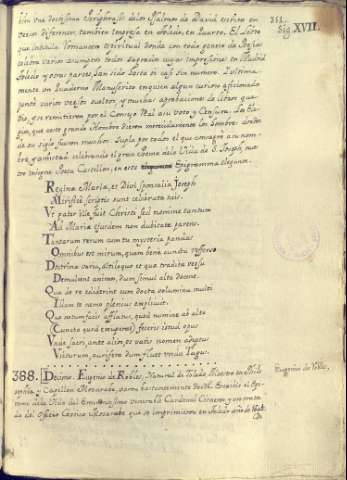 351.
Sig. XVII.
con una doctissima Periphrasis de los Psalmos de David escrita en
versos diferentes, tambien impresa en Toledo, en Quarto. El Libro
que intitula Romancero Espiritual donde con todo genero de Poesias
celebra varios assumptos todos sagrados cuyas impresiones en Madrid
Toledo y otras partes, han sido hasta oi casi sin numero. I ultima
mente un Quaderno Manuscrito en quien algun curioso aficionado
juntó varios versos sueltos, y muchas aprobaciones de libros que
dio, o se remitieron por el Consejo Real a su voto y Censura. Los Elo
gios, que este grande Hombre dieron merecidamente los Hombres doctos
de su siglo fueron muchos. Supla por todos el que consagró a su nom
bre, y amistad celebrando el gran Poema dela Vida de S. Joseph, nues
tro insigne Poeta Castellon, en este Epigramma elegante.
Regina Maria, et Divi sponsalia Joseph
Mirificè scriptis sunt celebrata tuis.
Ut pater ille fuit Christi sed nomine tantum
Ad Maria ejusdem non dubitate parens.
Tantarum rerum cum tu mysteria pandas
Omnibus est mirum, quam bene cuncta
Doctrina varia, distileque et que tradita versu
Demulcent animos, dum simul alta docent.
Qua de re ediderint cum docta volumina multi
Illam te nemo plenius explicuit.
Quo actum facis afflatus, quod numine ab alto
(Cuncta quod exuperat) feceris istud opus
Vade sacer, ante alios, et vatis nomen adeptus
Victurum, purifero dum fluet unda Tagus.
388. Decimo. Eugenio de Robles, Natural de Toledo Maestro en Philo
sophia y Capellan Mozarabe, varon bastantemente docto. Escribio el Epi
tome de la Vida del Eminentissimo venerable Cardenal Cisneros, y un trata
do del Oficio Gotico Mozarabe que se imprimieron en Toledo año de 1604.
Eugenio de Robles,